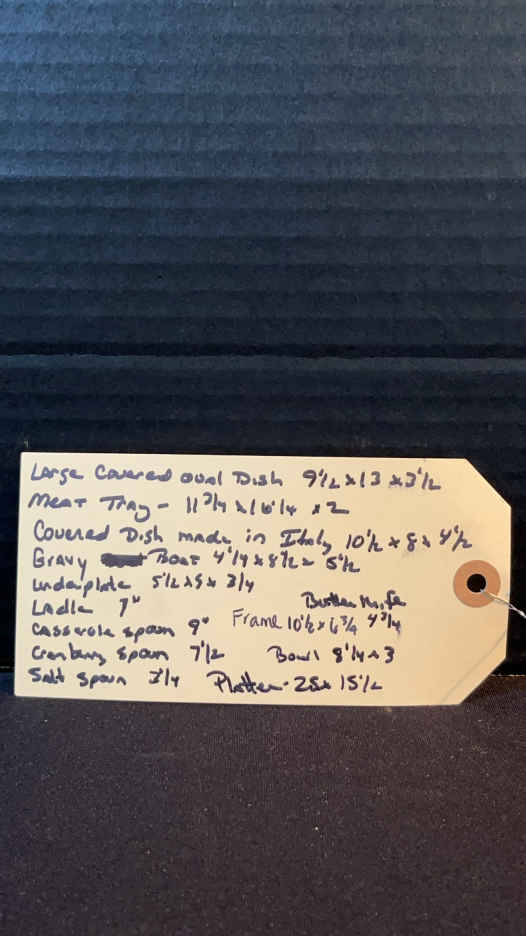 Large Covered oval Dish 9 1/2 x 13 x 3 1/2
Meat Tray - 11 3/4 x 16 1/4 x 2
Covered Dish made in Italy 10 1/2 x 8 x 4 1/2
Gravy Boat 4 1/4 x 8 1/2 x 5 1/2
underplate 5 1/2 x 9 x 3/4
Ladle 7"
Butter Knife
casserole spoon 9"
Frame 10 1/2 x 6 3/4
4 3/4
Cranberry spoon 7 1/2
Bowl 8 1/4 x 3
Salt spoon 3 1/4
Platter - 25 x 15 1/2